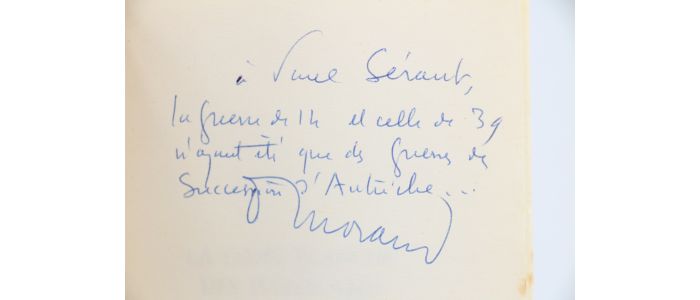 à Paul Sérant,
la guerre de 14 et celle de 39
n'ayant été que des guerres de
Succession d'Autriche...
P Morand